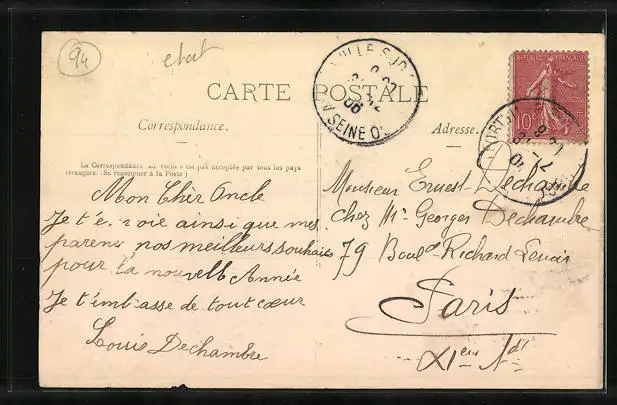 94
CARTE POSTALE
Correspondance.
Adresse.
La Correspondance au recto n'est pas acceptée par tous les pays
étrangers. (Se renseigner à la Poste)
REPUBLIQUE FRANÇAISE
10c
SEINE
Mon Cher Oncle
Je t'envoie ainsi que mes
parents nos meilleurs souhaits
pour la nouvelle Année
Je t'embrasse de tout cœur
Louis Dechambre
Monsieur Ernest Dechambre
chez Mr Georges Dechambre
79 Boulд Richard Lenoir
Paris
XIeme